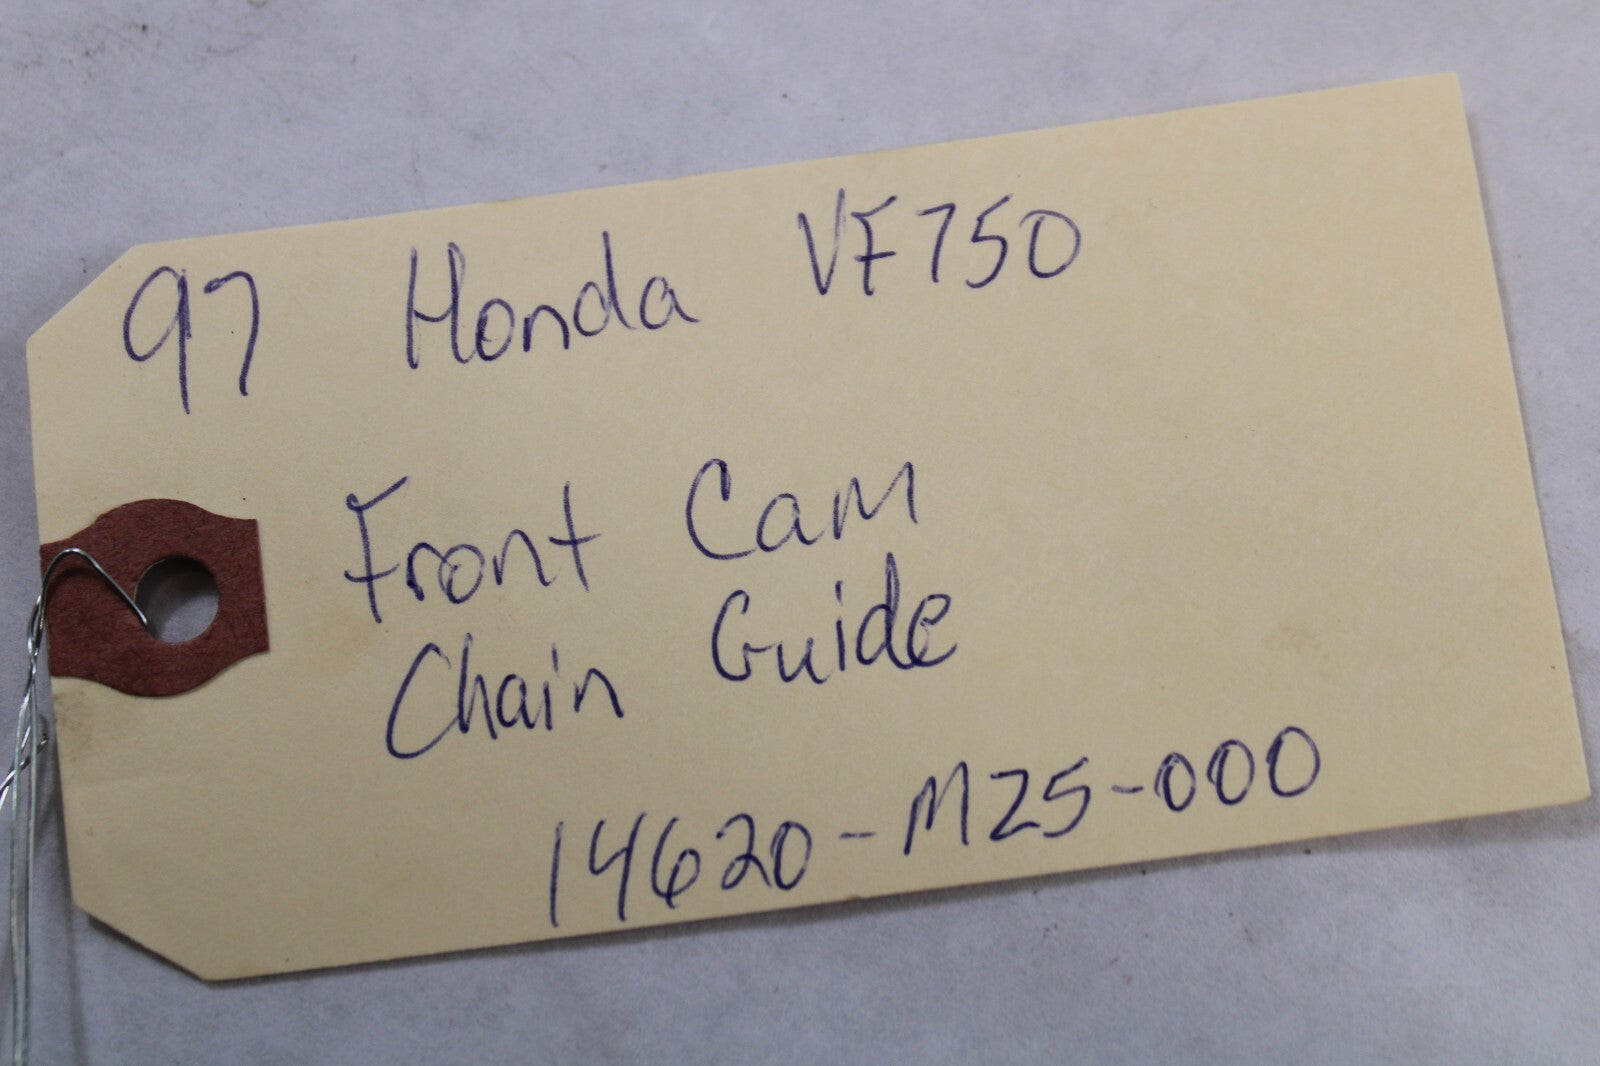 97 Honda VF750
Front Cam
Chain Guide
14620-MZ5-000